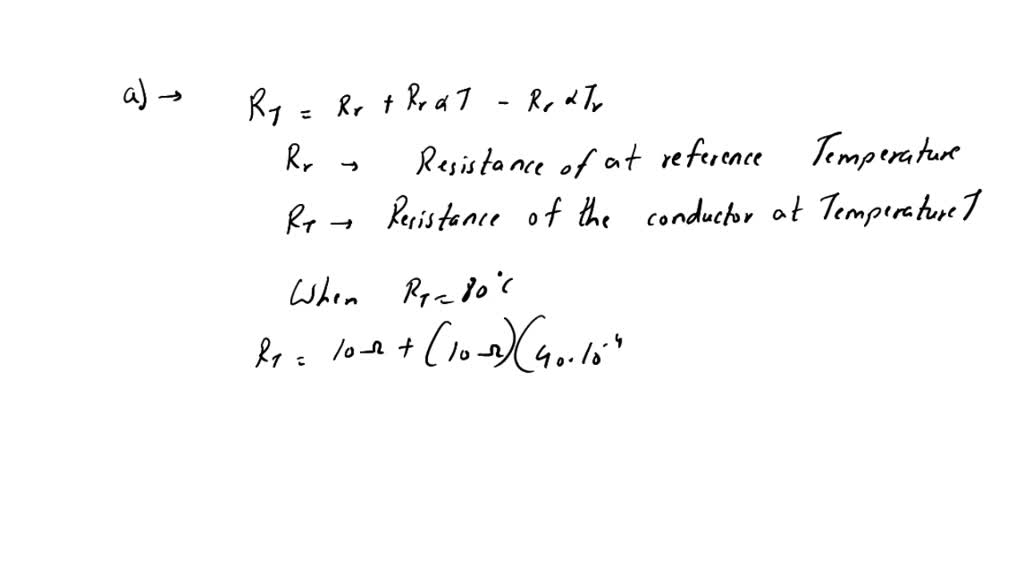 a) → R_T = R_r + R_r α T - R_r α T_r
R_r → Resistance of at reference Temperature
R_T → Resistance of the conductor at Temperature T
When R_T = 80°C
R_T = 10 Ω + (10 Ω)(40.10^-4